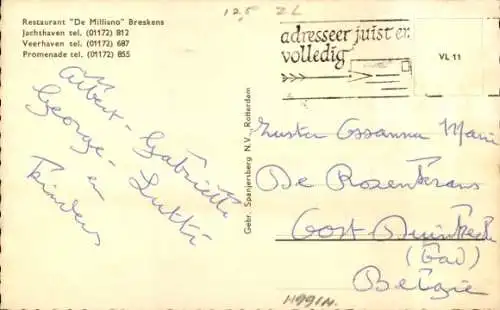 12,5 ZL
Restaurant "De Milliano" Breskens
Jachthaven tel. (01172) 812
Veerhaven tel. (01172) 687
Promenade tel. (01172) 855
adresseer juist en
volledig
VL 11
Albert - Gabrielle
George - Lukki
en
Kinderen
Gebr. Spanjersberg N.V., Rotterdam
Zuster Ossanna Marie
De Rozenkrans
Oost Duinkerke
(Bad)
Belgie